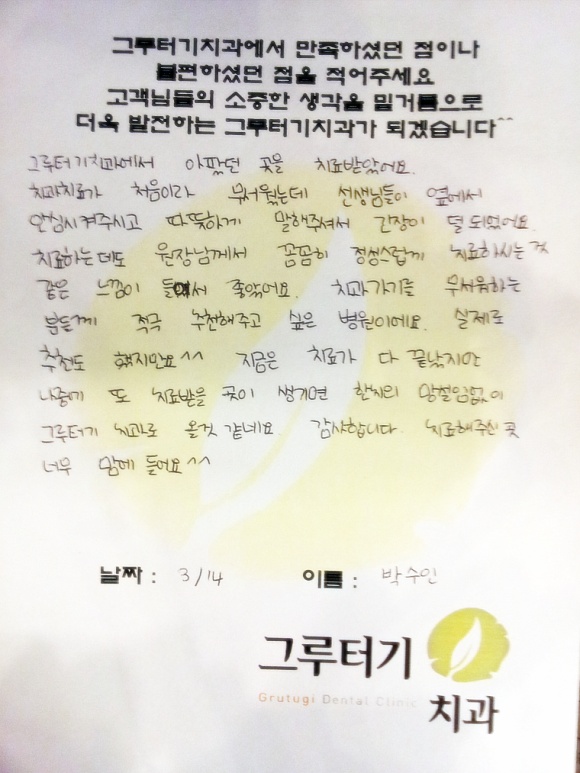 그루터기치과에서 만족하셨던 점이나
불편하셨던 점을 적어주세요
고객님들의 소중한 생각을 밑거름으로
더욱 발전하는 그루터기치과가 되겠습니다^^
그루터기치과에서 아팠던 곳을 치료받았어요.
치과치료가 처음이라 무서웠는데 선생님들이 옆에서
안심시켜주시고 따뜻하게 말해주셔서 긴장이 덜 되었어요.
치료하는데도 원장님께서 꼼꼼히 정성스럽게 치료하시는 것
같은 느낌이 들어서 좋았어요. 치과가기를 무서워하는
분들께 적극 추천해주고 싶은 병원이에요. 실제로
추천도 했지만요^^ 지금은 치료가 다 끝났지만
나중에 또 치료받을 곳이 생기면 한치의 망설임없이
그루터기 치과로 올것 같네요. 감사합니다. 치료해주신 곳
너무 맘에 들어요^^
날짜 : 3/14 이름 : 박수인
그루터기
Grutugi Dental Clinic
치과